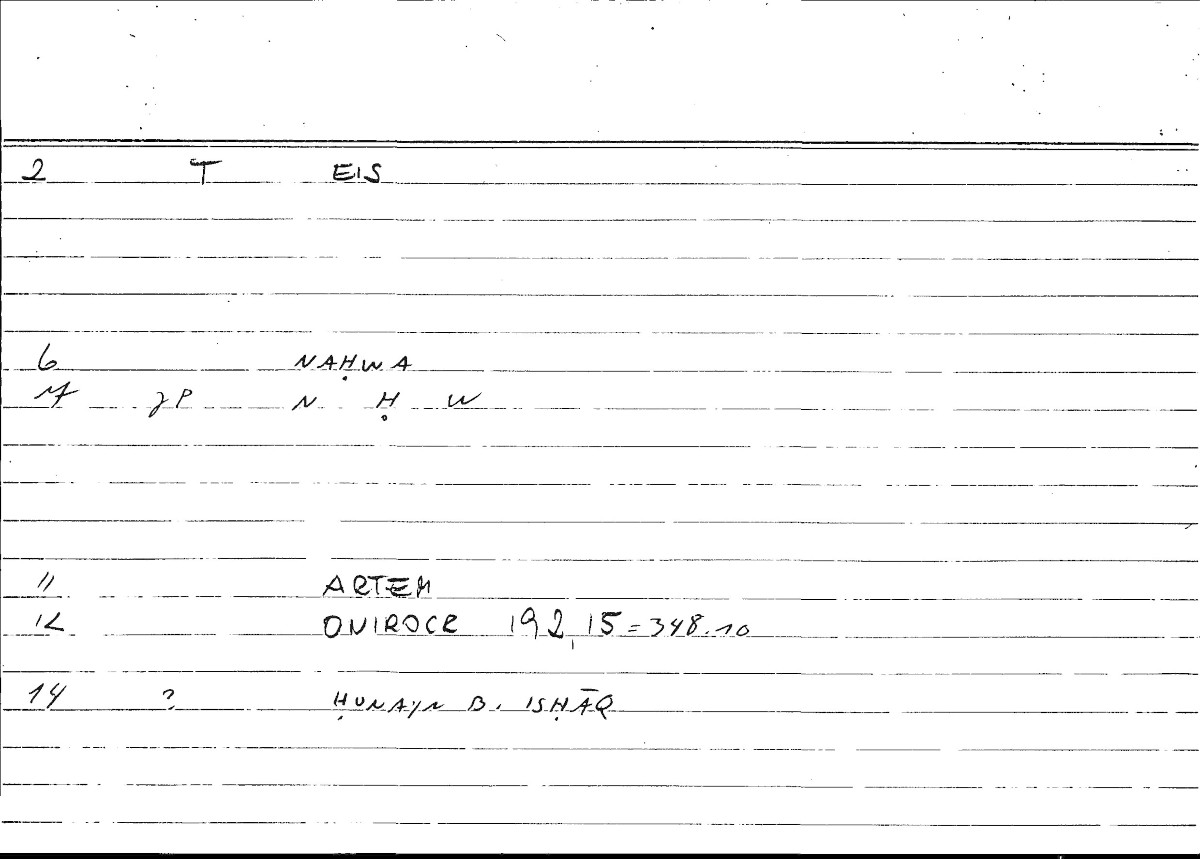 2 T EIS
6 NAḤWA
N Ḥ W
11 ARTEM
12 ONIROCR 192,15=348.10
14 ? ḤUNAYN B. ISḤĀQ